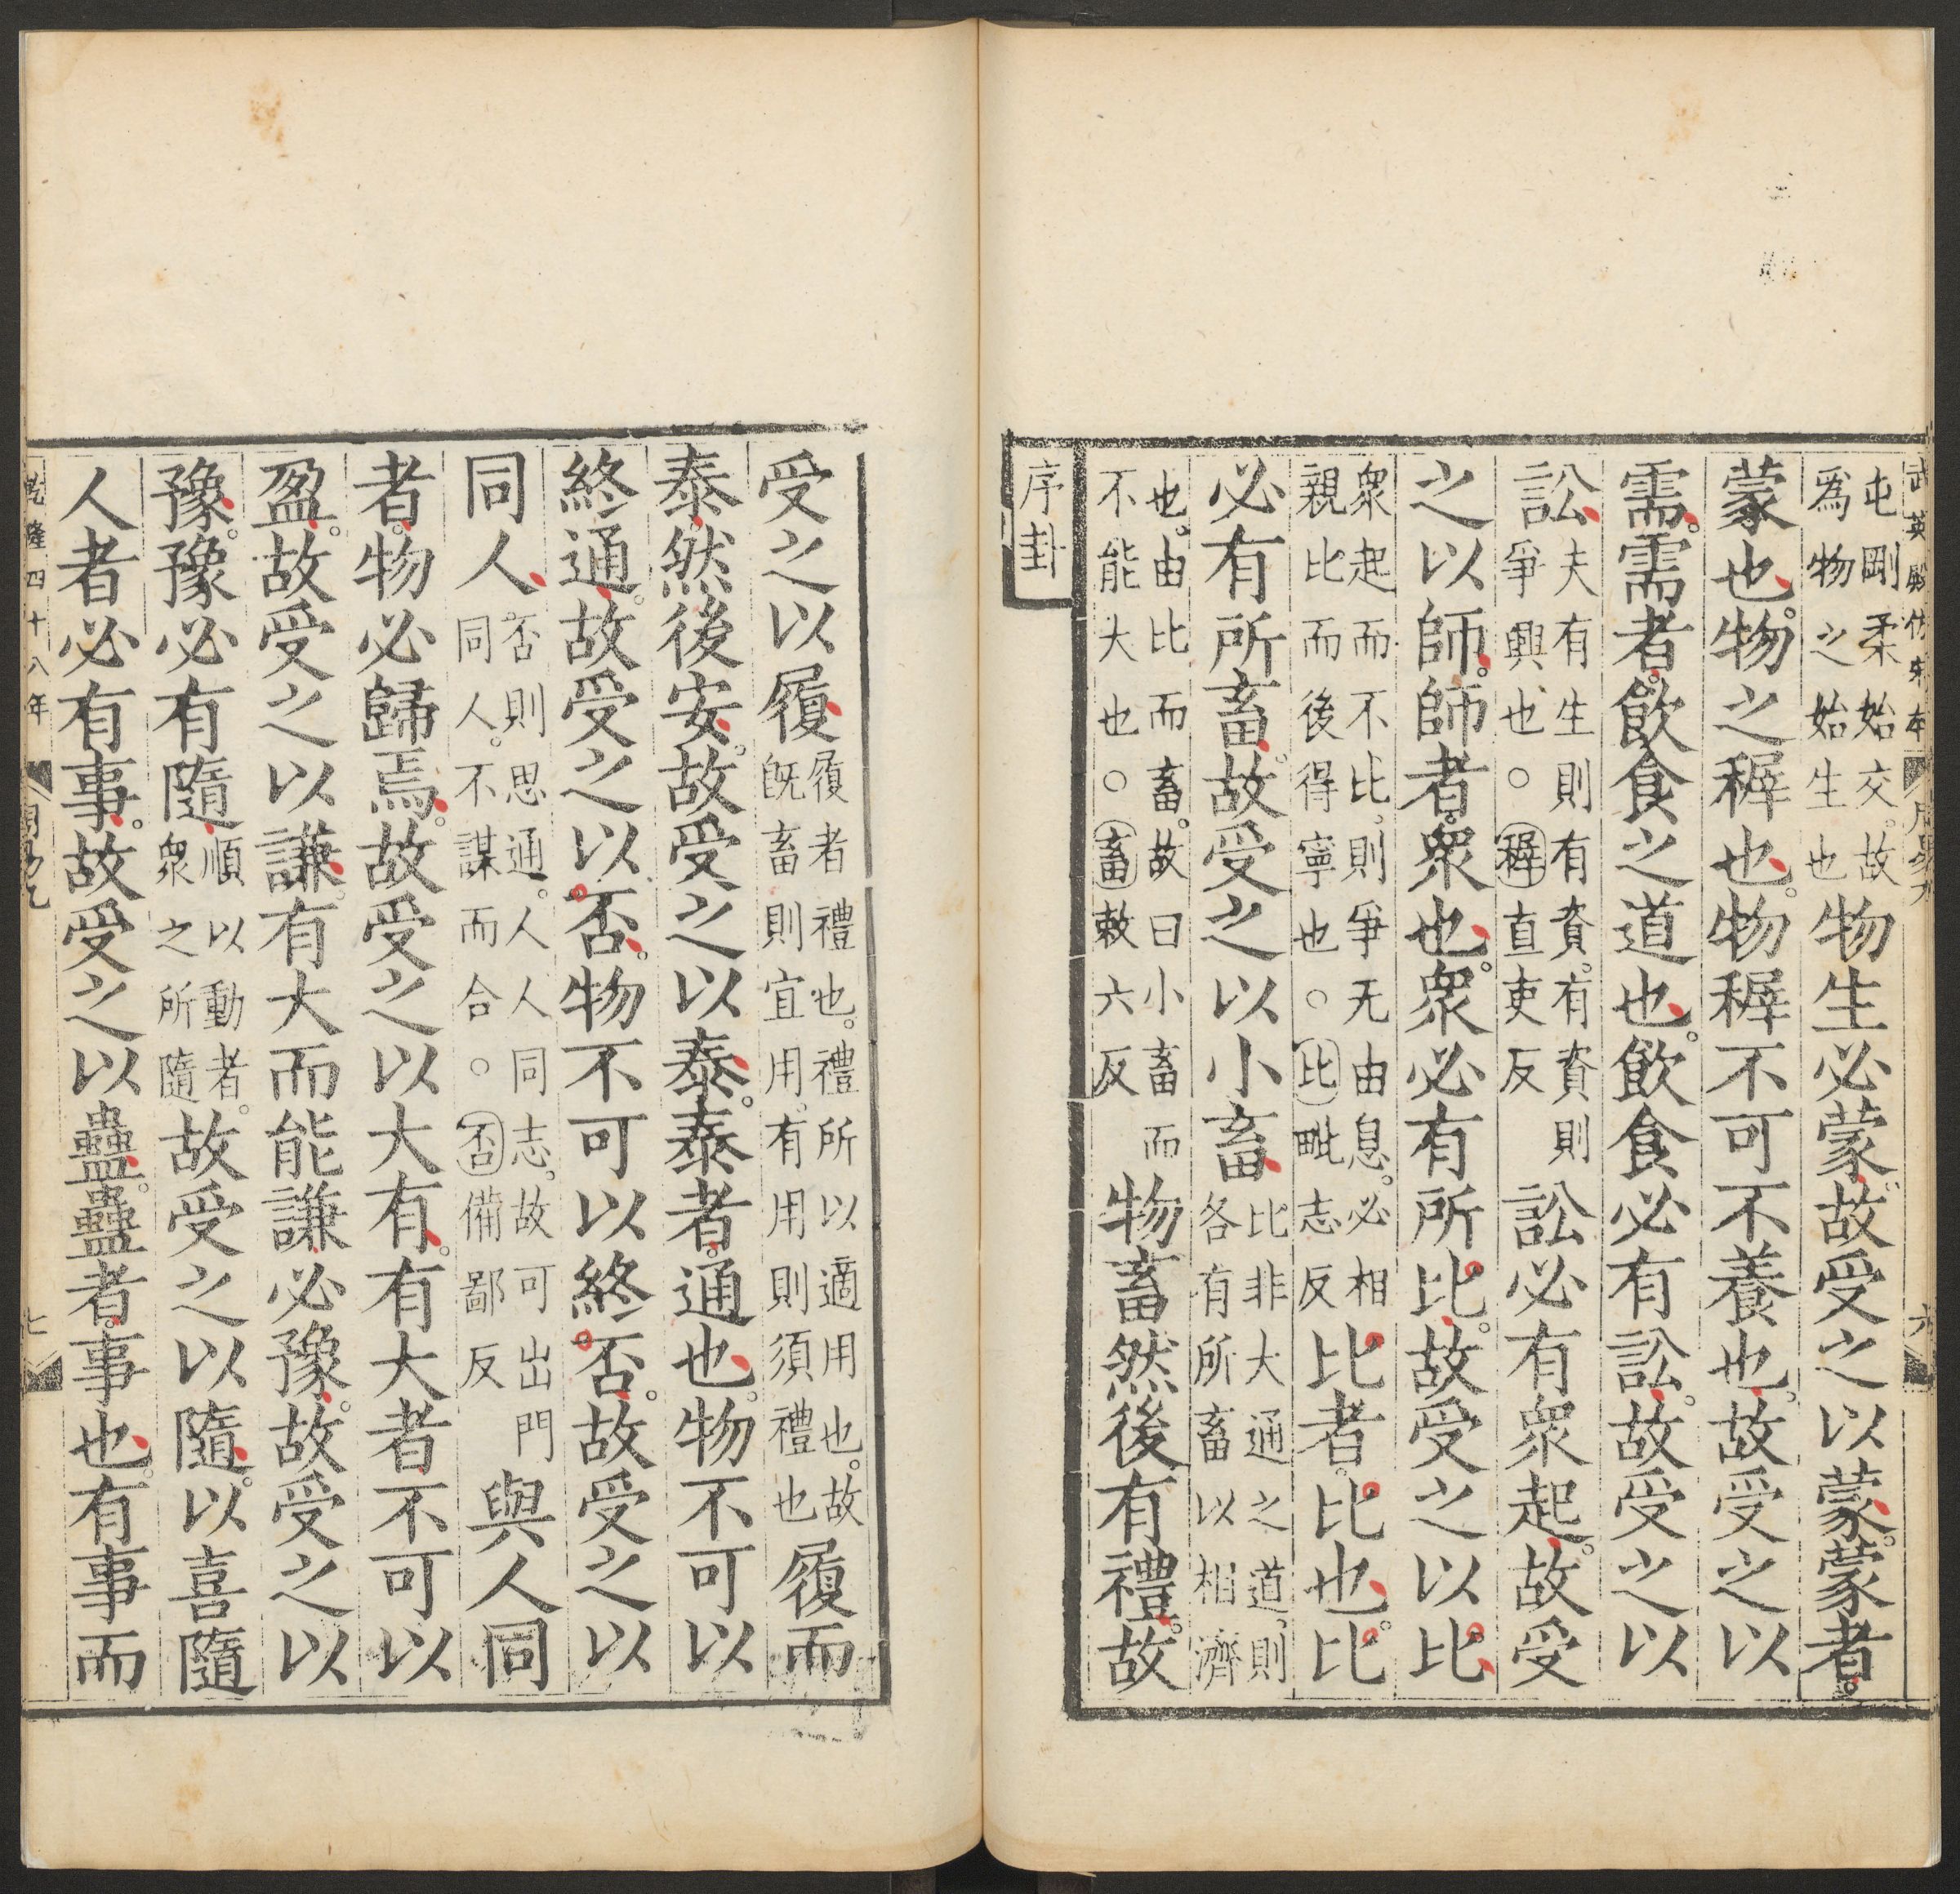 武英殿仿宋本 周易九 六
屯剛柔始交故爲物之始生也物生必蒙故受之以蒙蒙者
蒙也物之穉也物穉不可不養也故受之以
需需者飲食之道也飲食必有訟故受之以
訟夫有生則有資有資則爭興也○穉直吏反訟必有衆起故受
之以師師者衆也衆必有所比故受之以比
衆起而不比則爭无由息必相親比而後得寧也○比毗志反比者比也比
必有所畜故受之以小畜比非大通之道則各有所畜以相濟
也由比而畜故曰小畜而不能大也○畜敕六反物畜然後有禮故
序卦
受之以履履者禮也禮所以適用也故既畜則宜用有用則須禮也履而
泰然後安故受之以泰泰者通也物不可以
終通故受之以否物不可以終否故受之以
同人否則思通人人同志故可出門同人不謀而合○否備鄙反與人同
者物必歸焉故受之以大有有大者不可以
盈故受之以謙有大而能謙必豫故受之以
豫豫必有隨順以動者衆之所隨故受之以隨以喜隨
人者必有事故受之以蠱蠱者事也有事而
乾隆四十八年 周易九 七